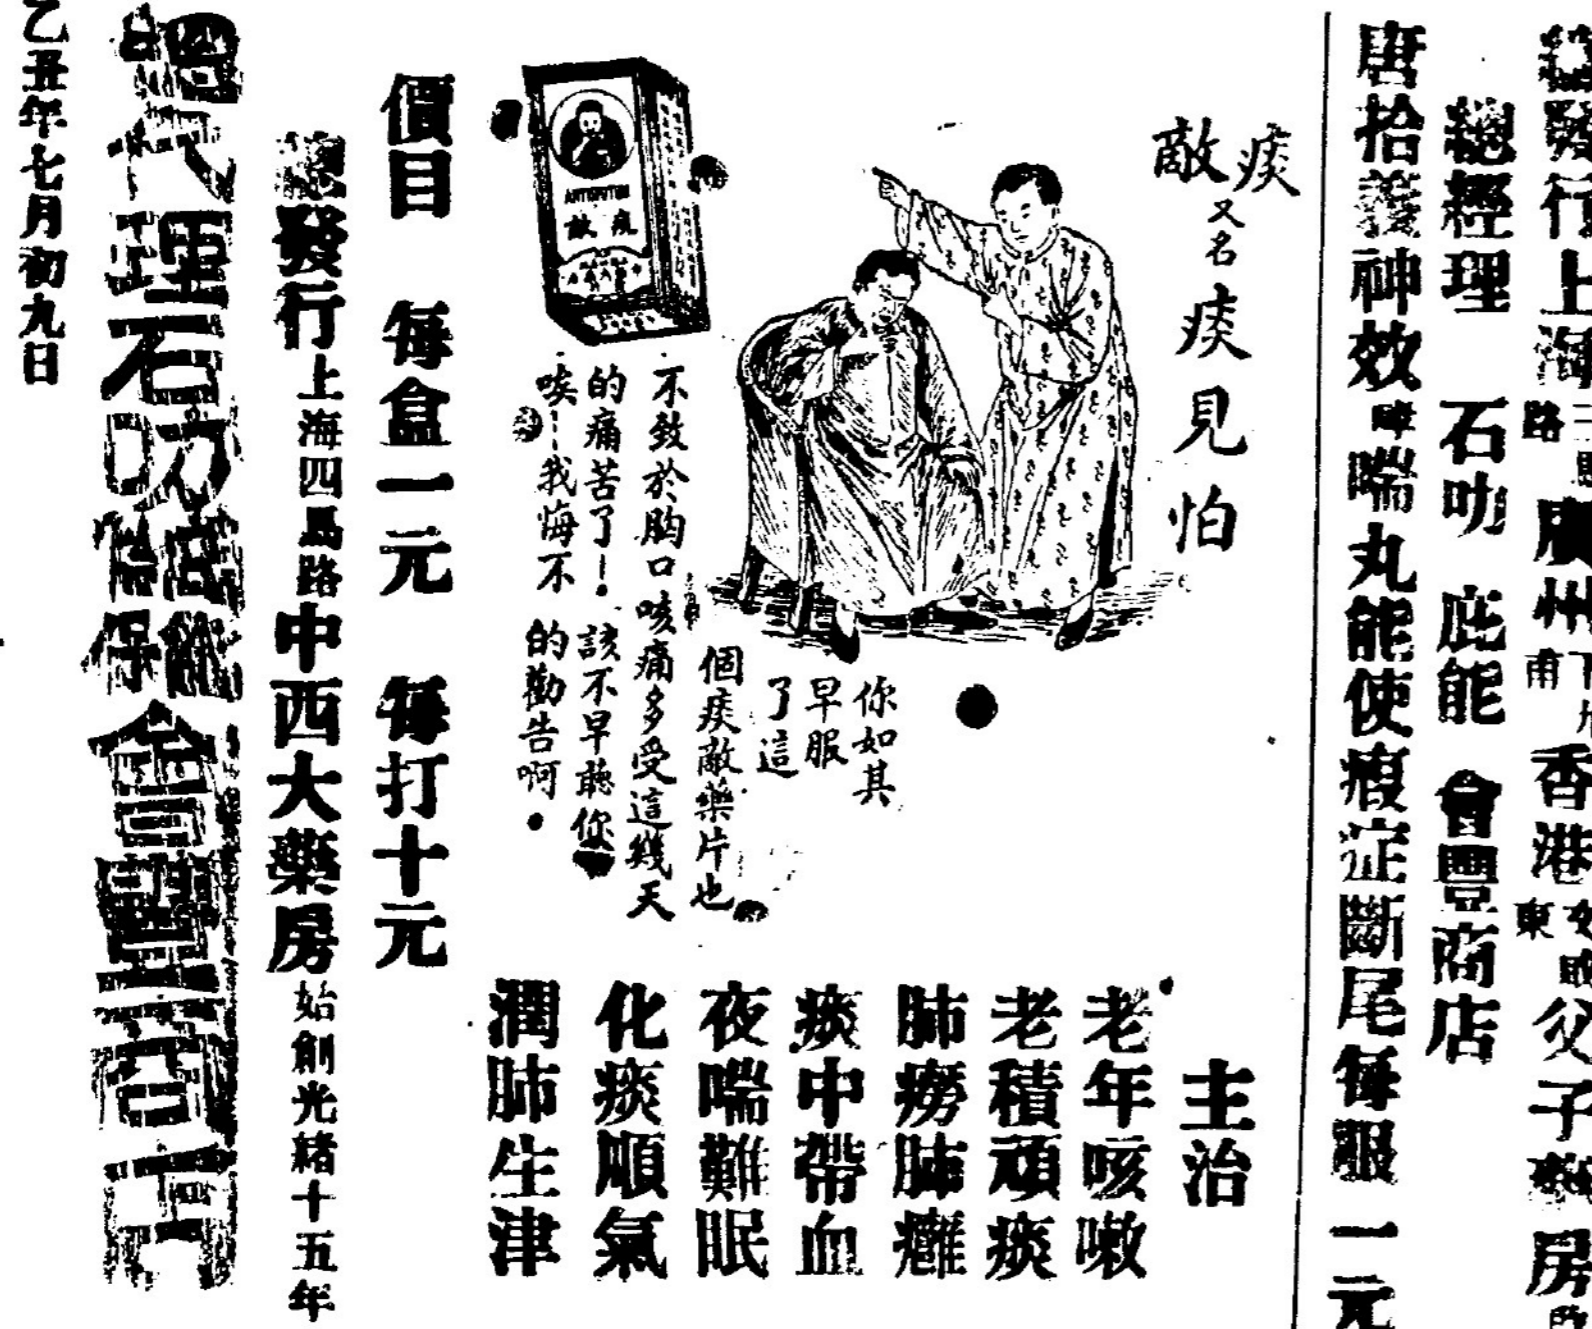 發行上海
路
廣州
甫
香港
東
父子
房
總經理 石叻 庇能 會豐商店
唐拾義神效哮喘丸能使瘕症斷尾每服一元
痰敵
又名
痰見怕
你如其
早服
了這
個痰敵藥片也
不致於胸口咳痛多受這幾天
的痛苦了！該不早聽您
唉！我悔不的勸告啊
ANTISPUTUM
痰敵
主治
老年咳嗽
老積頑痰
肺癆肺癰
痰中帶血
夜喘難眠
化痰順氣
潤肺生津
價目 每盒一元 每打十元
總發行上海四馬路中西大藥房始創光緒十五年
總代理石叻
會豐
乙丑年七月初九日